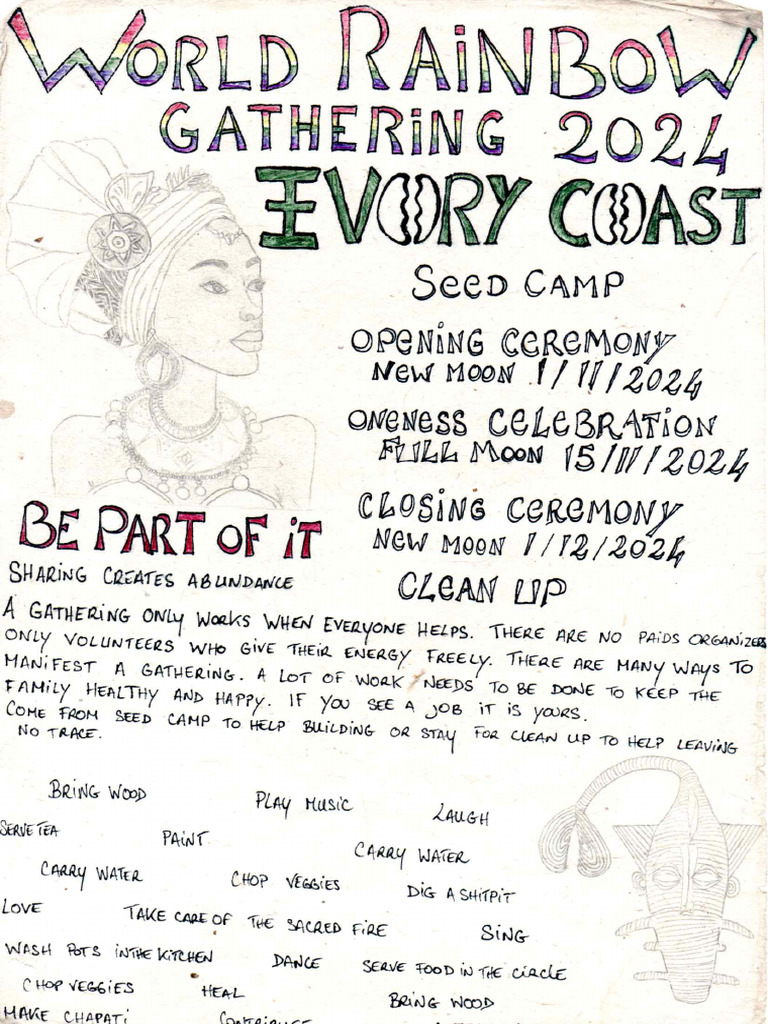 WORLD RAiNBOW
GATHERiNG 2024
IVORY COAST
SEED CAMP
OPENiNG CEREMONY
NEW MOON 1/11/2024
ONENESS CELEBRATiON
FULL MOON 15/11/2024
CLOSiNG CEREMONY
NEW MOON 1/12/2024
CLEAN UP
BE PART OF iT
SHARING CREATES ABUNDANCE
A GATHERING ONLY WORKS WHEN EVERYONE HELPS. THERE ARE NO PAIDS ORGANIZERS
ONLY VOLUNTEERS WHO GIVE THEIR ENERGY FREELY. THERE ARE MANY WAYS TO
MANIFEST A GATHERING. A LOT OF WORK NEEDS TO BE DONE TO KEEP THE
FAMILY HEALTHY AND HAPPY. IF YOU SEE A JOB IT IS YOURS.
COME FROM SEED CAMP TO HELP BUILDING OR STAY FOR CLEAN UP TO HELP LEAVING
NO TRACE.
BRING WOOD PLAY MUSIC LAUGH
SERVE TEA PAINT CARRY WATER
CARRY WATER CHOP VEGGIES DIG A SHITPIT
LOVE TAKE CARE OF THE SACRED FIRE SING
WASH POTS IN THE KITCHEN DANCE SERVE FOOD IN THE CIRCLE
CHOP VEGGIES HEAL BRING WOOD
MAKE CHAPATI